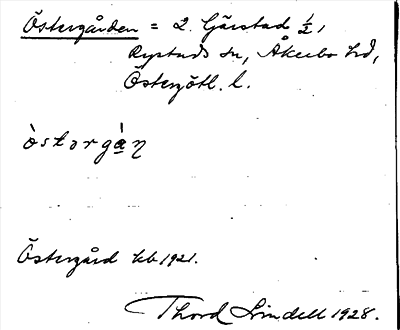 Östergården = 2 Gärstad ½,
Rystads sn, Åkerbo hd,
Östergötl. l.
òstərgàη
Östergård hb 1921.
Thord Lindell 1928.